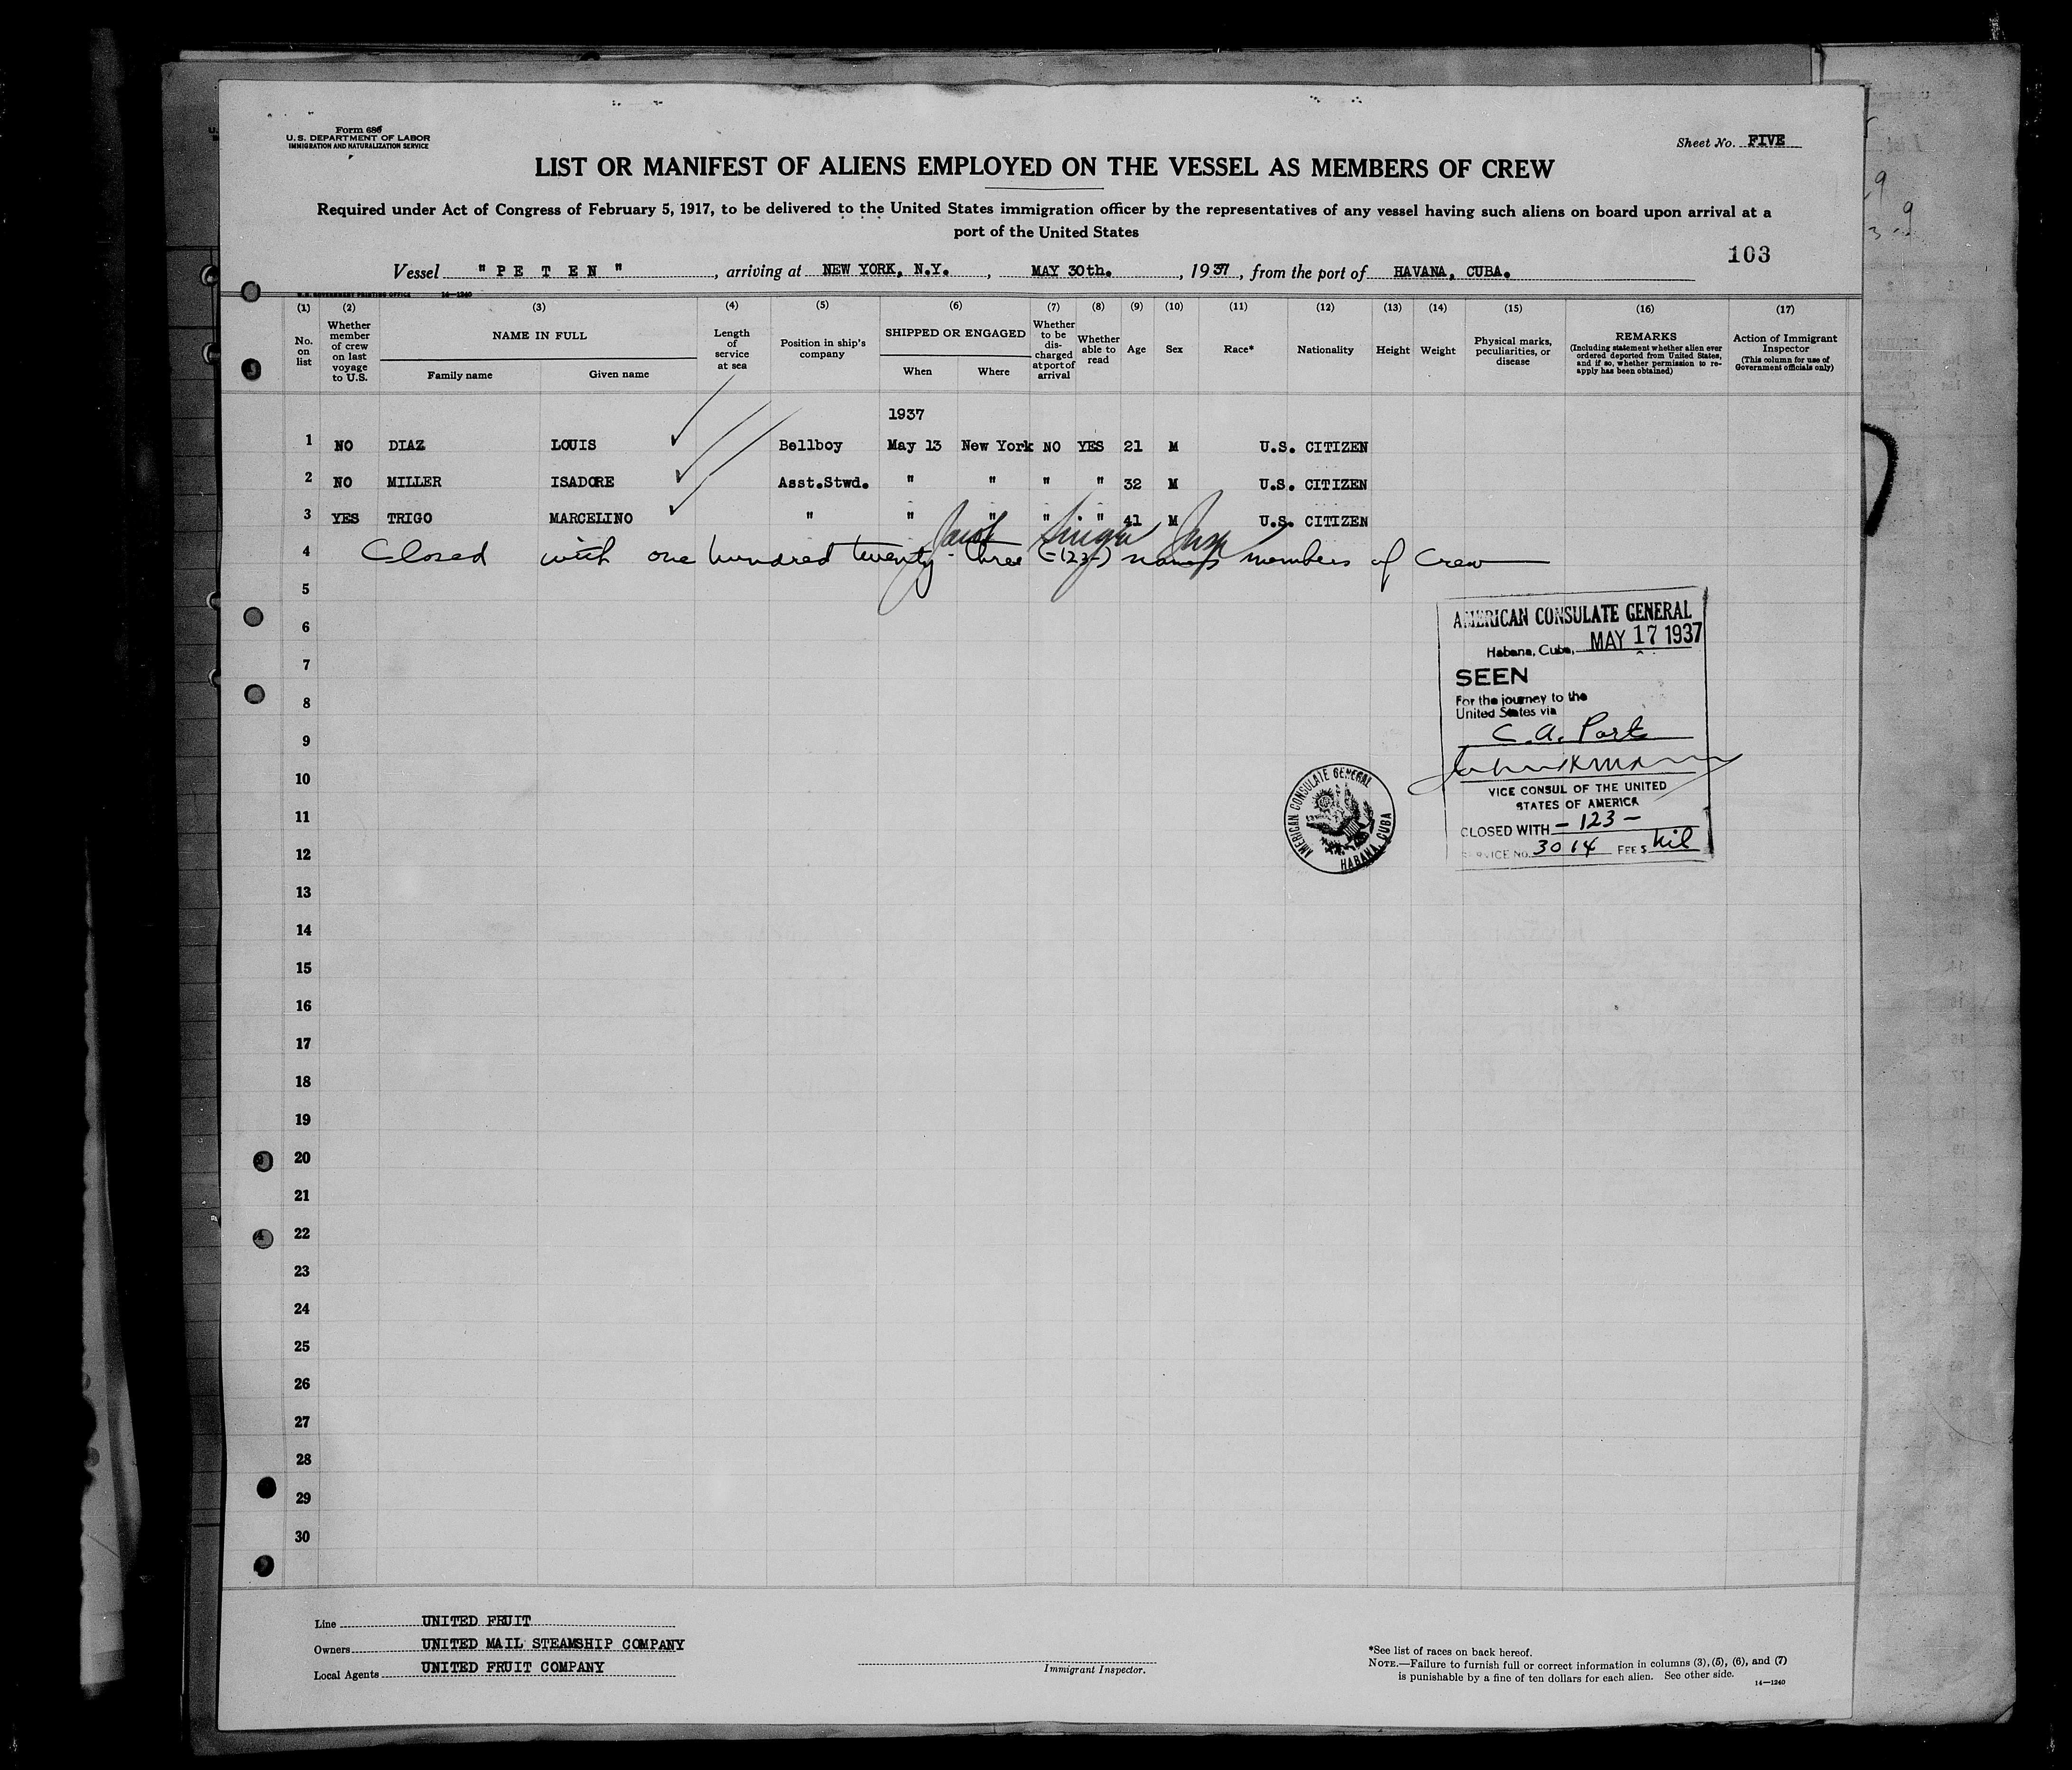 Form 686
U.S. DEPARTMENT OF LABOR
IMMIGRATION AND NATURALIZATION SERVICE
Sheet No. FIVE
LIST OR MANIFEST OF ALIENS EMPLOYED ON THE VESSEL AS MEMBERS OF CREW
Required under Act of Congress of February 5, 1917, to be delivered to the United States immigration officer by the representatives of any vessel having such aliens on board upon arrival at a
port of the United States
103
Vessel "PETEN", arriving at NEW YORK, N.Y., MAY 30th., 1937, from the port of HAVANA, CUBA.
U.S. GOVERNMENT PRINTING OFFICE 14—1240
(1) (2) (3) (4) (5) (6) (7) (8) (9) (10) (11) (12) (13) (14) (15) (16) (17)
No. on list
Whether member of crew on last voyage to U.S.
NAME IN FULL
Family name Given name
Length of service at sea
Position in ship's company
SHIPPED OR ENGAGED
When Where
Whether to be discharged at port of arrival
Whether able to read
Age
Sex
Race*
Nationality
Height
Weight
Physical marks, peculiarities, or disease
REMARKS
(Including statement whether alien ever ordered deported from United States, and if so, whether permission to reapply has been obtained)
Action of Immigrant Inspector
(This column for use of Government officials only)
1937
1 NO DIAZ LOUIS Bellboy May 13 New York NO YES 21 M U.S. CITIZEN
2 NO MILLER ISADORE Asst.Stwd. " " " " 32 M U.S. CITIZEN
3 YES TRIGO MARCELINO " " " " " 41 M U.S. CITIZEN
4 Closed with one hundred twenty-three (-123-) names members of Crew
5
6
7
8
9
10
11
12
13
14
15
16
17
18
19
20
21
22
23
24
25
26
27
28
29
30
AMERICAN CONSULATE GENERAL
Habana, Cuba, MAY 17 1937
SEEN
For the journey to the
United States via
C.A. Ports
VICE CONSUL OF THE UNITED
STATES OF AMERICA
CLOSED WITH -123-
SERVICE NO. 3014 FEE $ Nil
AMERICAN CONSULATE GENERAL
HABANA, CUBA
Line UNITED FRUIT
Owners UNITED MAIL STEAMSHIP COMPANY
Local Agents UNITED FRUIT COMPANY
Immigrant Inspector.
*See list of races on back hereof.
NOTE.—Failure to furnish full or correct information in columns (3), (5), (6), and (7)
is punishable by a fine of ten dollars for each alien. See other side.
14—1240